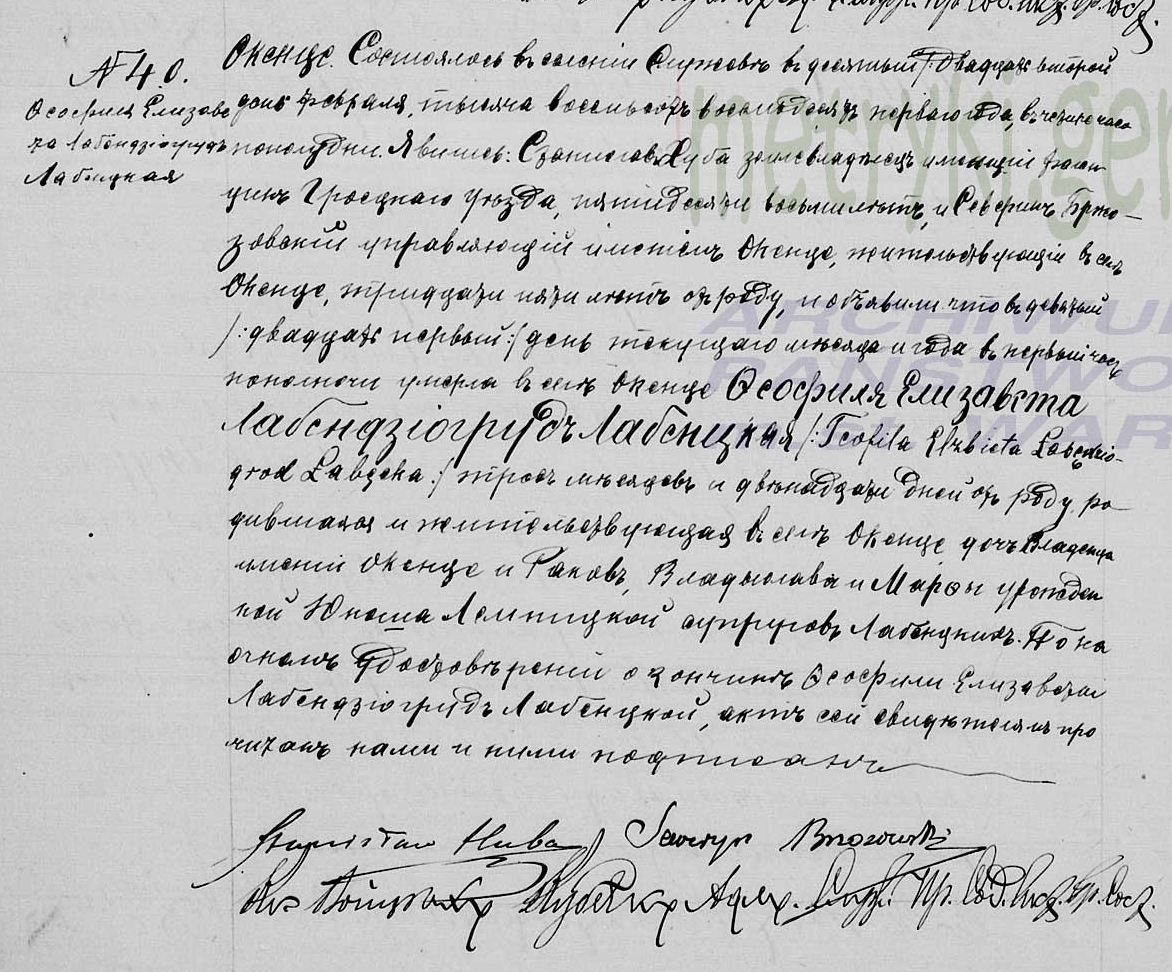 № 40.
Ѳеофиля Елизаве
та Лабендзіогрудъ
Лабенцкая
Окенце. Состоялось въ селеніи Служевѣ въ десятый /: двадцать второй
день Февраля, тысяча восемьсотъ восемдесятъ перваго года, въ часа
пополудни. Явились: Станиславъ Хуба землевладѣлецъ имѣнія
Гроецкаго уѣзда, пятидесяти восьми лѣтъ, и Северинъ Брже-
зовскій управляющій имѣніемъ Окенце, жительствующій въ селѣ
Окенце, тридцати пяти лѣтъ отъ роду, и объявили что въ девятый
/: двадцать первый :/ день текущаго мѣсяца и года въ первый часъ
пополночи умерла въ селѣ Окенце Ѳеофиля Елизавета
Лабендзіогрудъ Лабенцкая /: Teofila Elżbieta Łabędzio-
grod Łabęcka :/ трехъ мѣсяцевъ и двѣнадцати дней отъ роду, ро-
дившаяся и жительствующая въ селѣ Окенце, дочь Владельца
имѣній Окенце и Раковъ, Владыслава и Марѳы урожден
ной Юноша Лемпицкой супруговъ Лабенцкихъ. По на
очномъ удостовѣреніи о кончинѣ Ѳеофили Елизаветы
Лабендзіогрудъ Лабенцкой, актъ сей свидѣтелямъ про
читанъ нами и ними подписанъ
Stanisław Huba Seweryn Brzozowski
Пр. Сод. Акт. Гр. Сост.